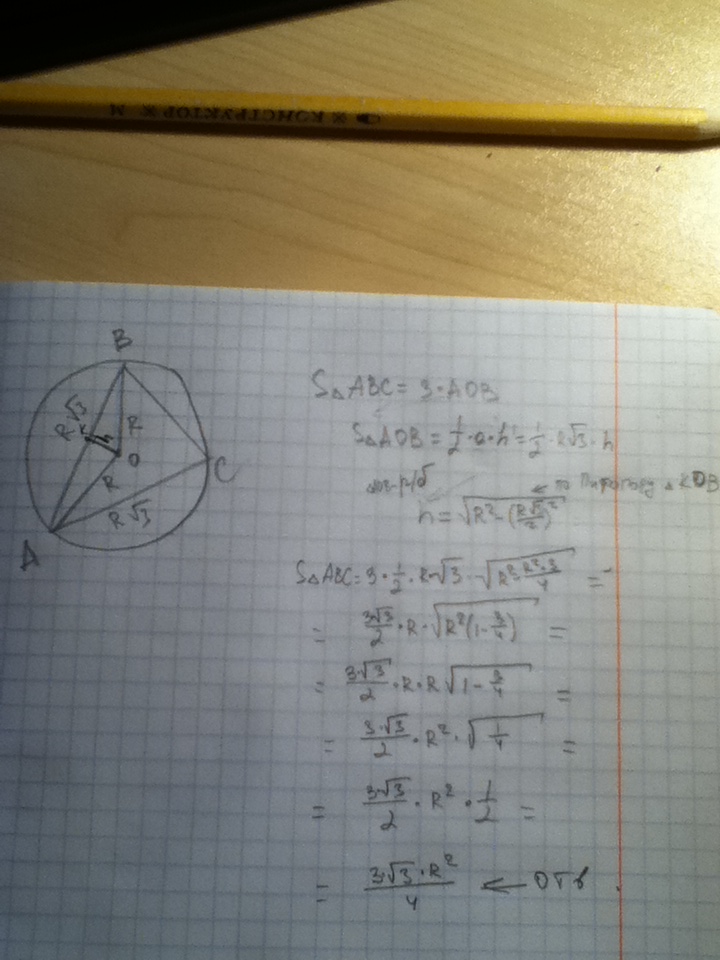 КОНСТРУКТОР М
B
R√3
K
R
O
R
C
R√3
A
S△ABC = 3·AOB
S△AOB = 1/2·a·h = 1/2·R√3·h
h = √(R² - (R√3/2)²) ← по Пифагору △KOB
S△ABC = 3·1/2·R√3·√(R² - R²·3/4) =
= 3√3/2·R·√(R²(1 - 3/4)) =
= 3·√3/2·R·R√(1 - 3/4) =
= 3·√3/2·R²·√(1/4) =
= 3√3/2·R²·1/2 =
= 3·√3·R²/4 ← ОТВ.